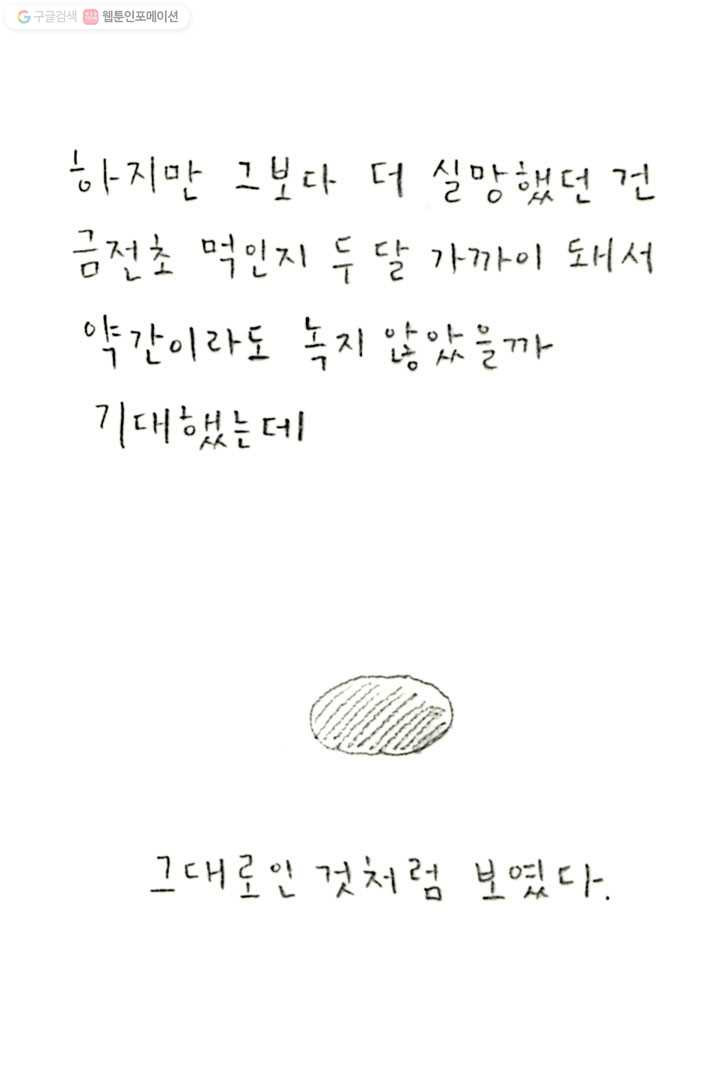 구글검색 웹툰인포메이션
하지만 그보다 더 실망했던 건
금전초 먹인지 두 달 가까이 돼서
약간이라도 녹지 않았을까
기대했는데
그대로인 것처럼 보였다.